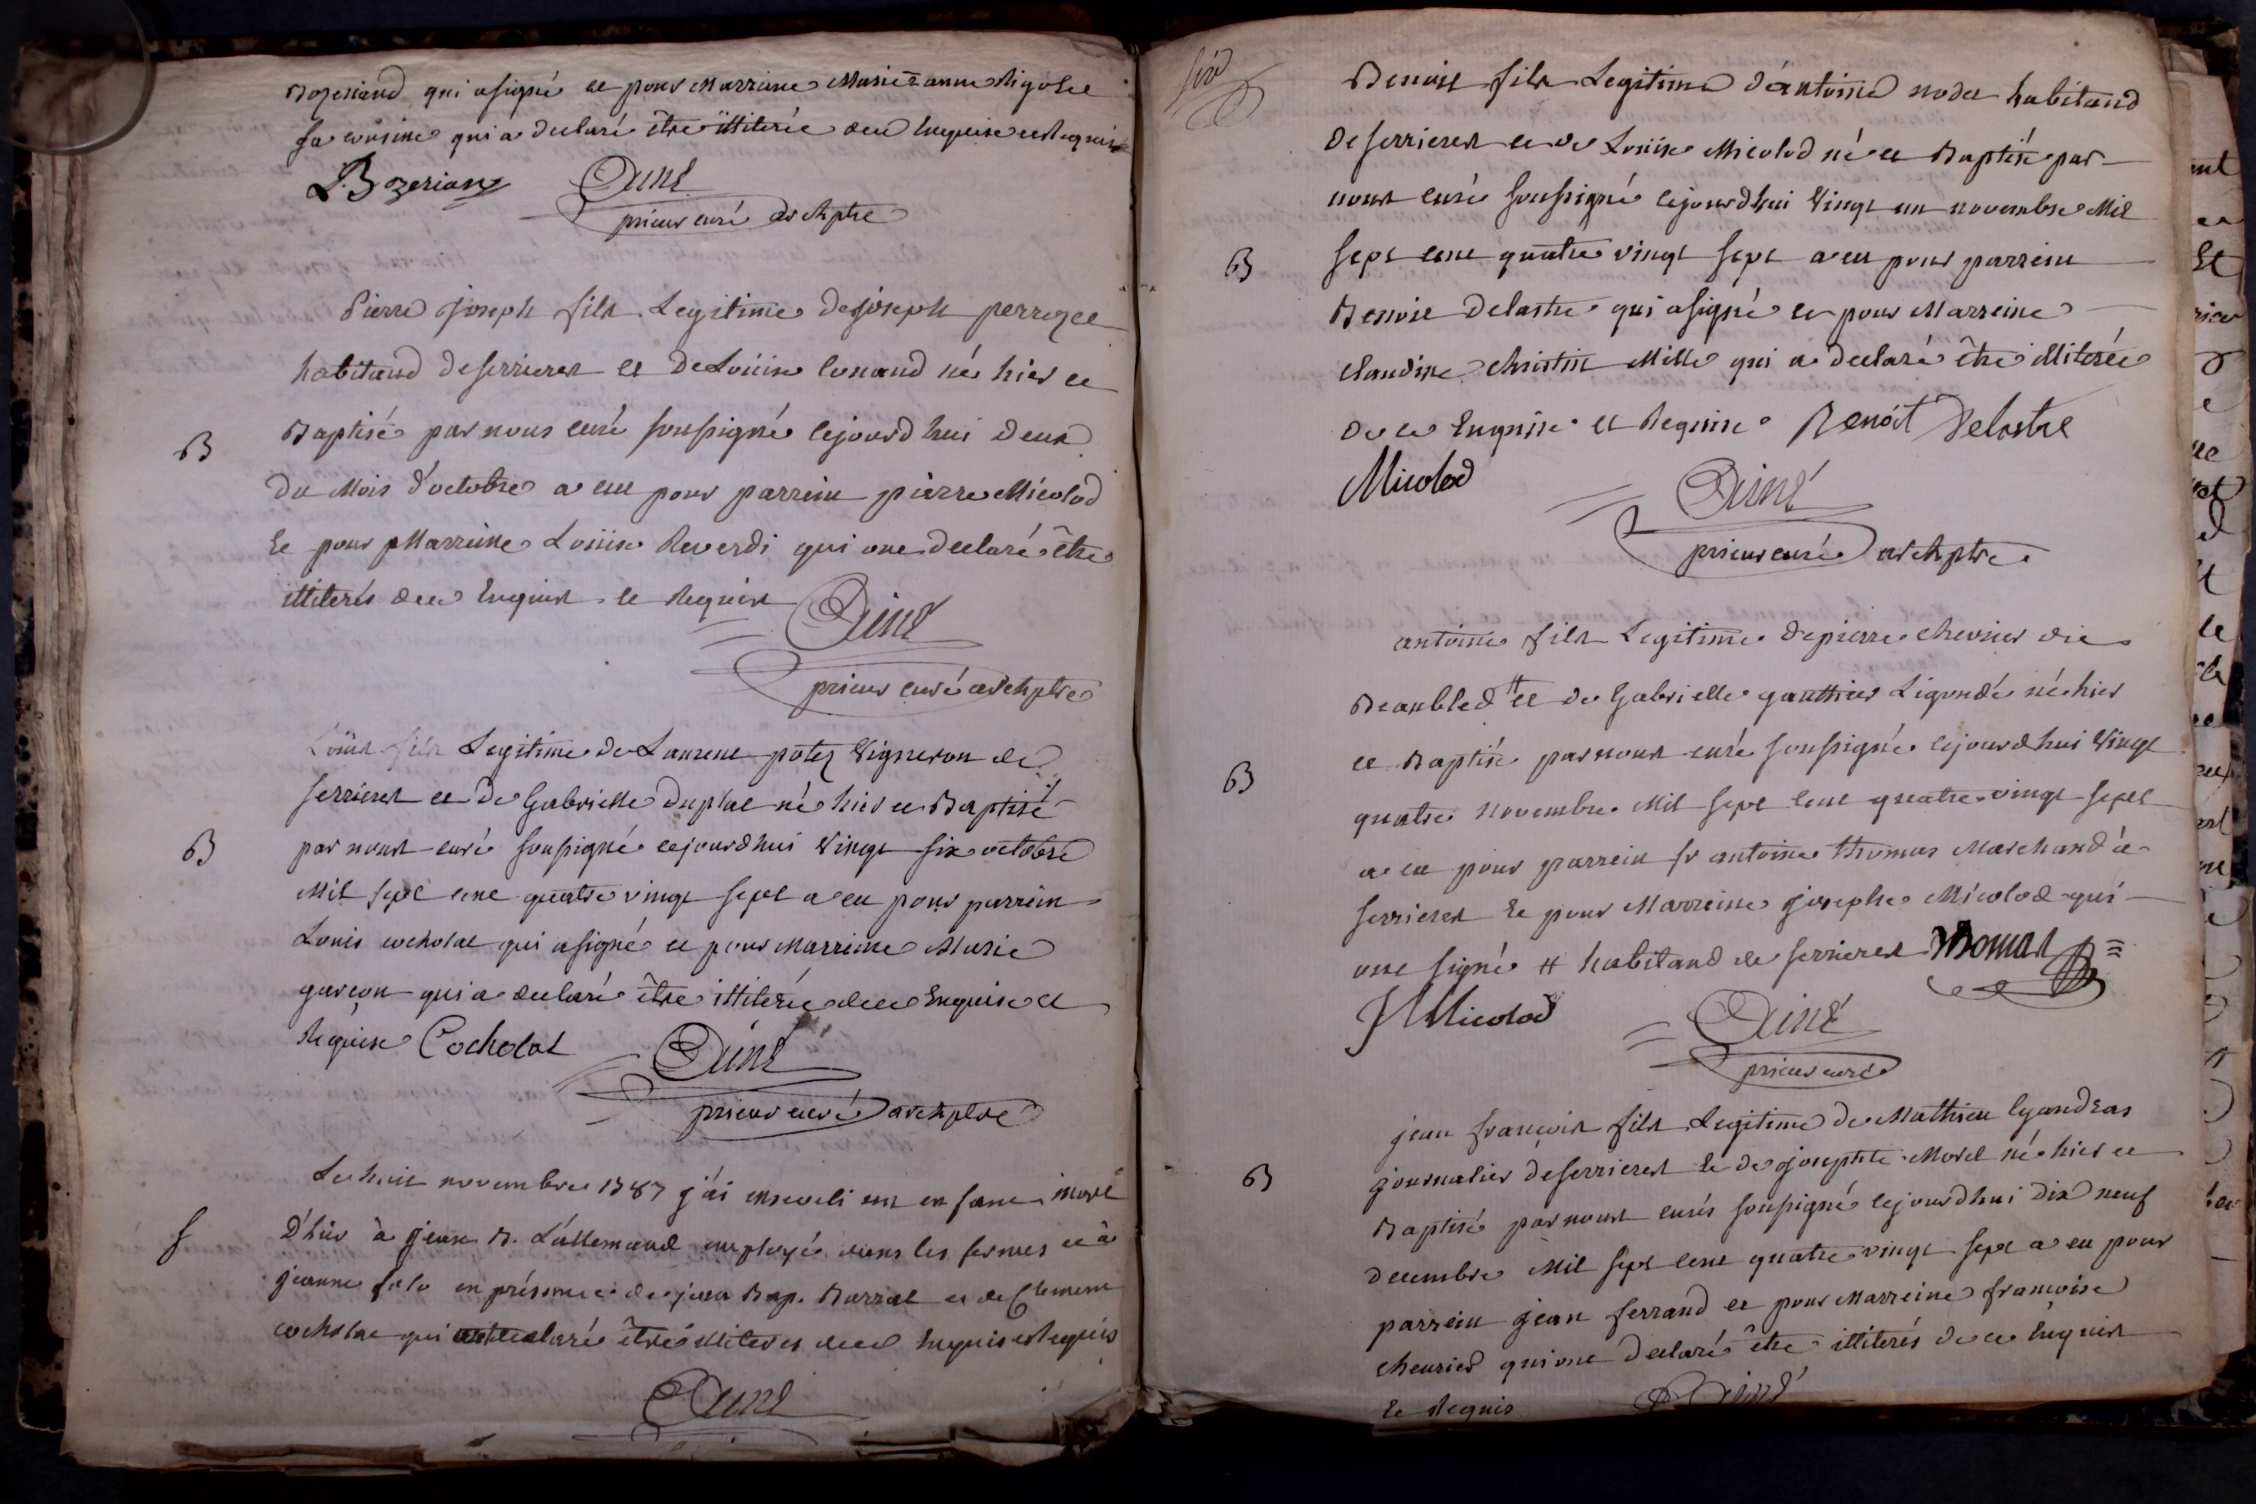 Bozeriand qui a signé et pour Marraine Marie anne Rigolet
sa cousine qui a declaré être illiterée de ce Enquise et Requise
L. Bozerian Ainé
prieur curé archiptre
Pierre joseph fils Legitime de joseph perrozet
habitand de serrieres et de Louise Conand né hier et
B
Baptisé par nous curé soussigné cejourdhui deux
du Mois d'octobre a eu pour parrein pierre Micolod
Et pour Marreine Louise Reverdi qui ont declaré être
illiterés de ce Enquist et Requist
Ainé
prieur curé archiptre
Loüis fils Legitime de Laurent potez Vigneron de
serrieres et de Gabrielle duplat né hier et Baptisé
B
par nous curé soussigné cejourdhui Vingt six octobre
Mil sept cent quatre vingt sept a eu pour parrein
Louis cocholat qui a signé et pour Marreine Marie
garçon qui a declaré être illiterée de ce Enquise et
Requise Cocholat Ainé
prieur curé archiptre
Le huit novembre 1787 j'ai enseveli un enfant mort
f
D'hier à jean B. L'allemand employé dans les fermes et à
jeanne en présence de jean Bap. Barrat et de Clement
cocholat qui ont declaré être illiteres de ce Enquis et Requis
Ainé
Benoit fils Legitime d'antoine nodet habitand
De serrieres et de Louise Micolod né et Baptisé par
nous curé soussigné cejourdhui Vingt un novembre Mil
B
sept cent quatre vingt sept a eu pour parrein
Benoit Delastre qui a signé et pour Marreine
claudine christin Mille qui a declaré être illiterée
de ce Enquise et Requise Benoit Delastre
Micolod Ainé
prieur curé archiptre
antoine fils Legitime de pierre chevrier dit
Beaubled # et de Gabrielle gauthier Ligondé né hier
B
et Baptisé par nous curé soussigné cejourdhui Vingt
quatre novembre Mil sept cent quatre vingt sept
a eu pour parrein sr antoine thomas Marchand à
serrieres Et pour Marreine josephe Micolod qui
ont signé # habitand de serrieres Thomas
J Micolod Ainé
prieur curé
jean françois fils Legitime de Mathieu
B
journalier de serrieres Et de josephte Morel né hier et
Baptisé par nous curé soussigné cejourdhui dix neuf
decembre Mil sept cent quatre vingt sept a eu pour
parrein jean ferrand et pour Marreine françoise
chevrier qui ont declaré être illiterés de ce Enquist
Et Requis Ainé